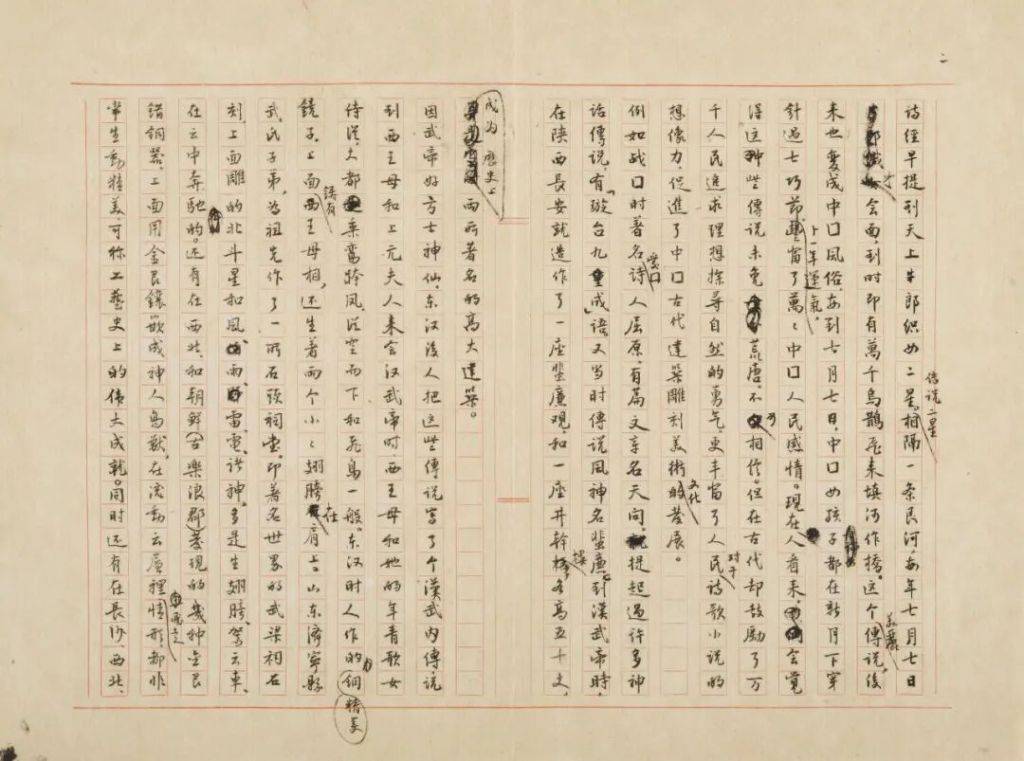 二
诗经早提到天上牛郎织女二星，传说二星相隔一条艮河，每年七月七日
才会面，到时即有萬千乌鹊飞来填河作橋。这个美丽传说，後
来也变成中囗风俗，每到七月七日，中囗女孩子都在新月下穿
针过七巧节，卜一年运氣。丰富了萬々中囗人民感情。现在人看来会觉
得这种些传说未免荒唐，不可相信。但在古代却鼓励了万
千人民追求理想探寻自然的勇气，更丰富了人民对于诗歌小说的
想像力，促進了中囗古代建築雕刻美術文化的发展。
例如战囗时楚囗著名诗人屈原，有篇文章名天问，提起过许多神
话傳说，有"璇台九重成"语。又当时传说风神名蜚廉，到漢武帝時，
在陕西長安就造作了一座蜚廉观，和一座井幹楼，各高五十丈，
成为歷史上两所著名的高大建築。
因武帝好方士神仙，东汉後人把这些傳说写了个漢武内傳说
到西王母和上元夫人来会汉武帝时，西王母和她的年青歌女
侍从，人都乘鸾跨凤，从空而下和飛鳥一般。东汉时人作的精美铜
镜子，上面鑄有西王母相，还生着两个小々翅膀在肩上。山东济寧縣
武氏子弟，为祖先作了一所石頭祠堂，即著名世界的武梁祠石
刻，上面雕的北斗星和风、雨、雷、電、诸神，多是生翅膀、驾云車、
在云中奔驰的。还有在西北、和朝鲜（古樂浪郡）发现的幾种金艮
错铜器，上面用金艮镶嵌成神人鸟獸，在流動云层裡情形，都非
常生動精美，可称工藝史上的伟大成就。同时还有在長沙、西北、